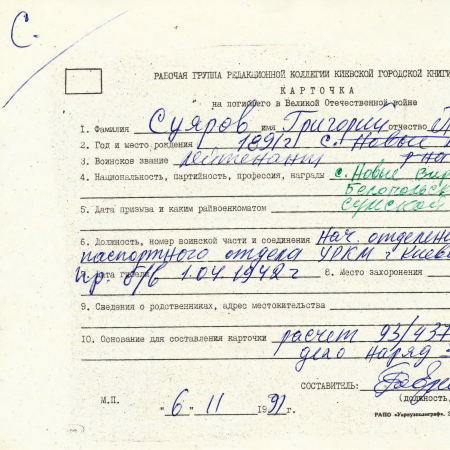 С.
РАБОЧАЯ ГРУППА РЕДАКЦИОННОЙ КОЛЛЕГИИ КИЕВСКОЙ ГОРОДСКОЙ КНИГИ
КАРТОЧКА
на погибшего в Великой Отечественной войне
1. Фамилия Суяров имя Григорий отчество
2. Год и место рождения 1891 г с. Новые
3. Воинское звание лейтенант
4. Национальность, партийность, профессия, награды с. Новые
Белопольск
Сумской
5. Дата призыва и каким райвоенкоматом
6. Должность, номер воинской части и соединения Нач. отделен
паспортного отдела УРКМ г Киев
7. Дата гибели пр. б/в 1.04 1942 г 8. Место захоронения
9. Сведения о родственниках, адрес местожительства
10. Основание для составления карточки расчет 93/437
дело наряд
СОСТАВИТЕЛЬ:
(должность,
М.П.
"6" 11 1991 г.
РАПО «Укрвузполиграф». З